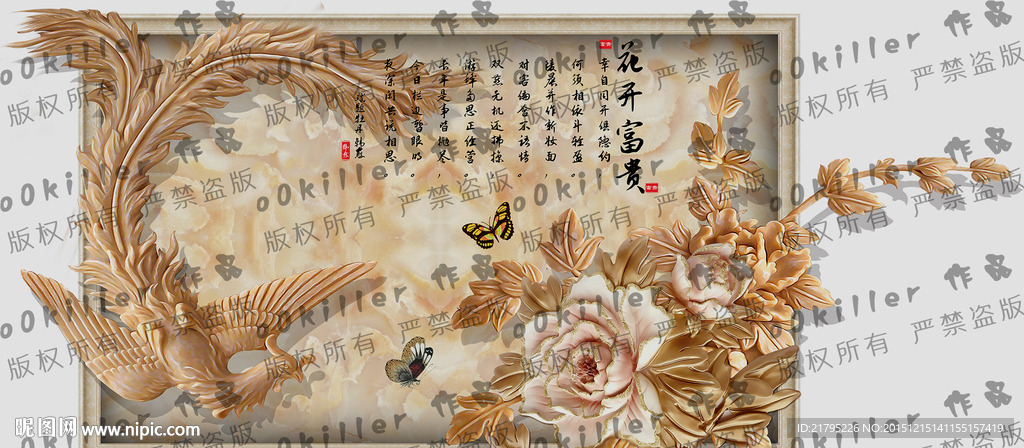 花开富贵
幸自同开俱隐约，
何须相依斗轻盈。
陵晨并作新妆面，
对客偏含不语情。
双燕无机还拂掠，
游蜂多思正经营。
长年是事皆抛尽，
今日栏边暂眼明。
夜深闲共说相思。
戏题牡丹 韩愈
oOkiller 作品
版权所有 严禁盗版
昵图网 www.nipic.com
ID:21795226 NO:20151215141155157419